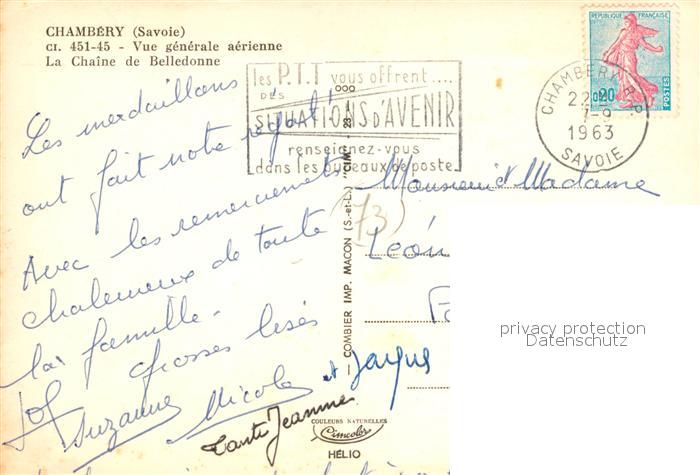 CHAMBÉRY (Savoie)
CI. 451-45 - Vue générale aérienne
La Chaîne de Belledonne
RÉPUBLIQUE FRANÇAISE
0,20
POSTES
les P.T.T vous offrent....
DES
SITUATIONS D'AVENIR
renseignez-vous
dans les bureaux de poste
CHAMBERY R.P.
22
7-9
1963
SAVOIE
Les merdaillons
ont fait notre régal !
Avec les remerciements
chaleureux de toute
la famille.
Grosses bises
Suzanne Nicole et Jacques
Tante Jeannine
Monsieur et Madame
Léon
73
COMBIER IMP. MACON (S.-et-L.) "CIM"
COULEURS NATURELLES
Cimcolor
HÉLIO
privacy protection
Datenschutz